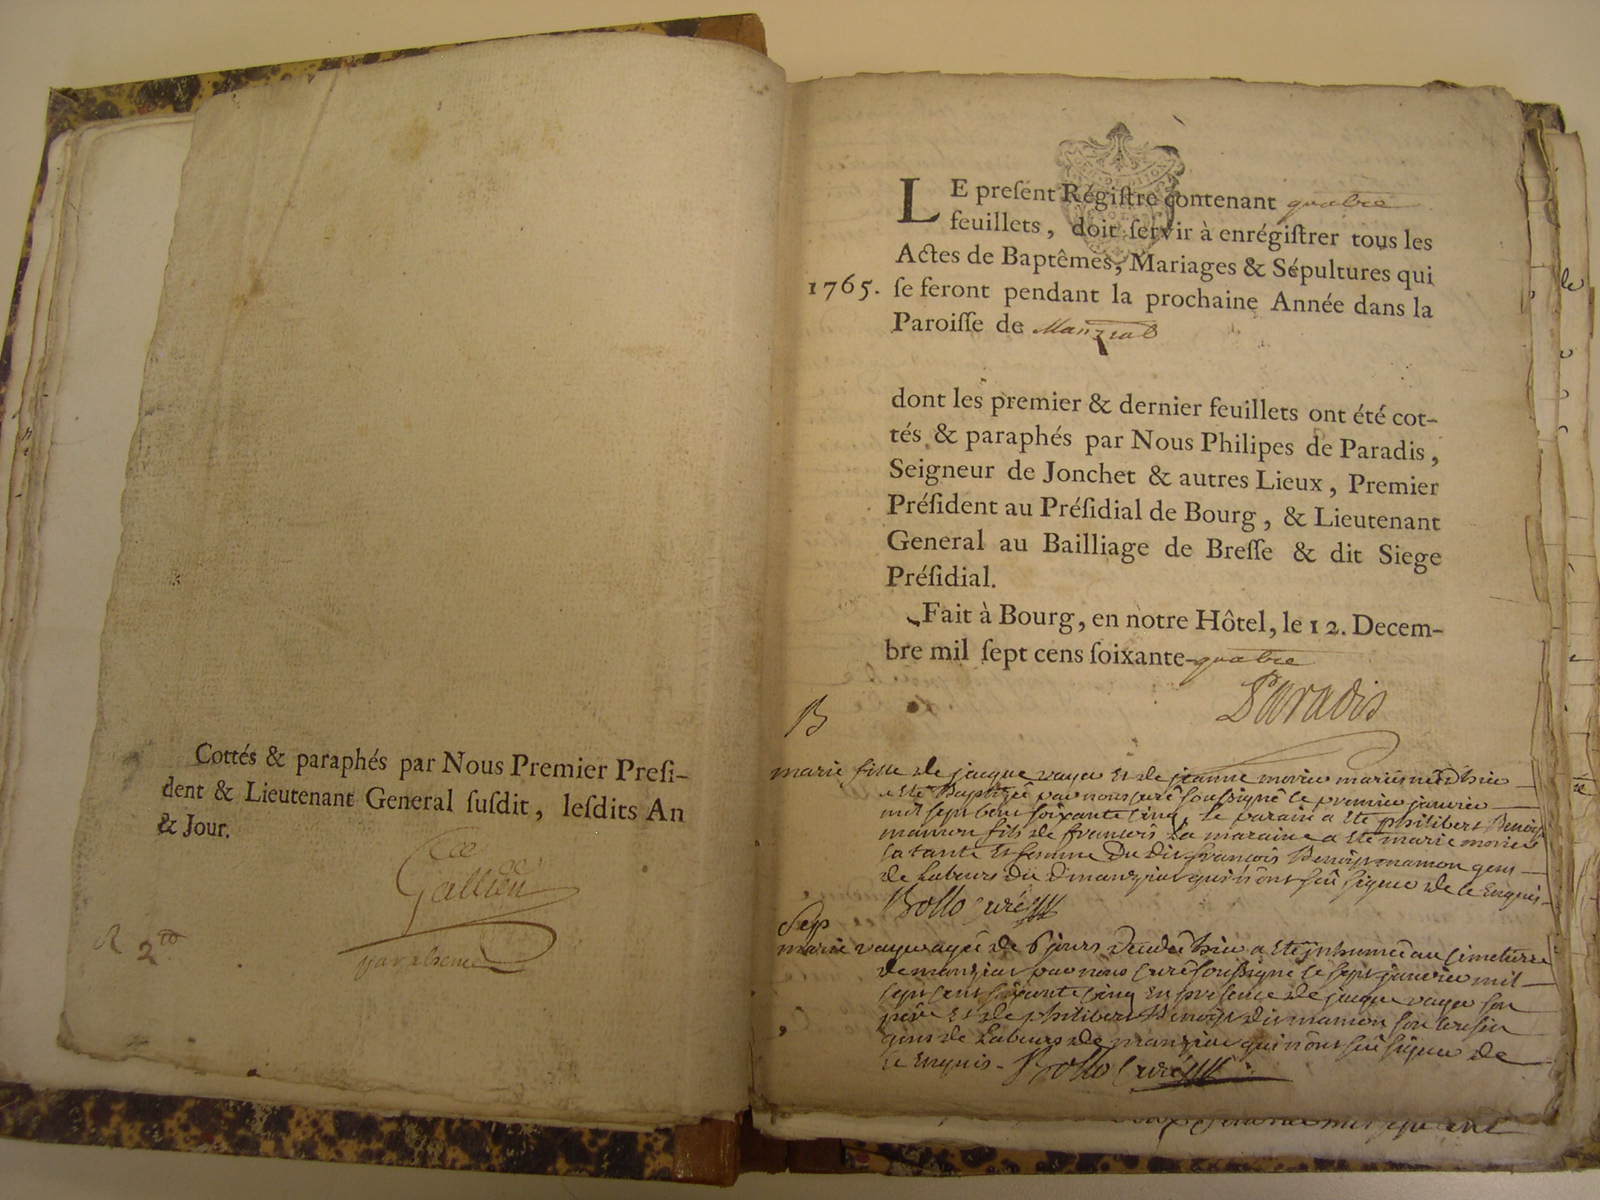 Cottés & paraphés par Nous Premier Presi-
dent & Lieutenant General susdit, lesdits An
& Jour.
Gallien
R 2
LE present Régistre contenant quatre
feuillets, doit servir à enrégistrer tous les
Actes de Baptêmes, Mariages & Sépultures qui
1765. se feront pendant la prochaine Année dans la
Paroisse de Manziat
dont les premier & dernier feuillets ont été cot-
tés & paraphés par Nous Philipes de Paradis,
Seigneur de Jonchet & autres Lieux, Premier
Président au Présidial de Bourg, & Lieutenant
General au Bailliage de Bresse & dit Siege
Présidial.
Fait à Bourg, en notre Hôtel, le 12. Decem-
bre mil sept cens soixante-quatre
Paradis
B
marie fille de jacque vayer et de jeanne
a été baptizée par nous curé soussigné le premier janvier
mil sept cent soixante cinq, le parain a été philibert Benoist
mamon fils de francois la maraine a été marie
sa tante et femme du dit francois Benoist mamon gens
de labeurs du d manziat qui n'ont sçû signer de ce enquis
Bollo curé
Sep
marie vayer agée de 6 jours a été inhumée au cimetiere
de manziat par nous curé soussigné le sept janvier mil
sept cent soixante cinq en presence de jacque vayer son
pere et de philibert Benoist dit mamon son
gens de labeurs de manziat qui n'ont sçû signer de
ce enquis. Bollo curé